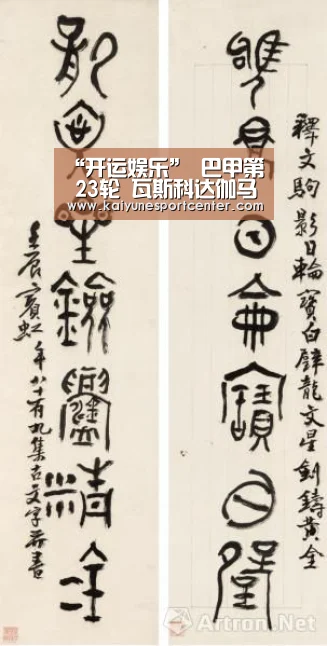 “开运娱乐” 巴甲第
23轮 瓦斯科达伽马
www.kaiyunesportcenter.com
釋文駒影日輪寶白璧龍文星劍鑄黃金
駒景日侖寶白璧
龍文星劍鑄黃金
壬辰賓虹年八十有九集古文字并書
Artron.Net